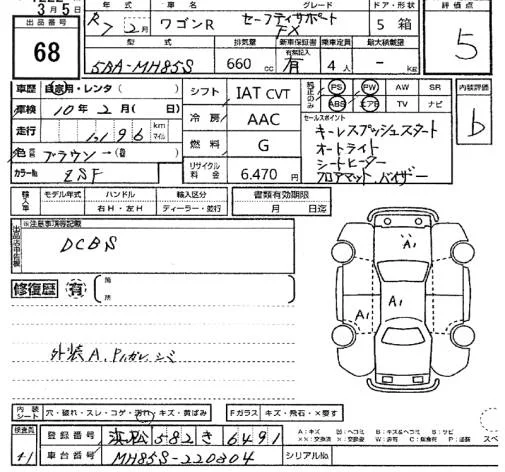 3月5日
年式 車名 グレード ドア・形状 評価点
出品番号
R7 2月 ワゴンR セーフティサポート FX 5箱 5
68
型式 排気量 新車保証書 乗車定員 最大積載量
有無記入
5BA-MH85S 660 cc 有 4人 - kg
車歴 自家用・レンタ( ) シフト IAT CVT 純正のみ PS PW AW SR 内装評価
ABS エアB TV ナビ
車検 10年2月( 日) 冷房 AAC セールスポイント b
走行 1,196 km マイル キーレスプッシュスタート
燃料 G オートライト
色 ブラウン→(替) シートヒーター
カラーNo ZSF リサイクル料金 6.470円 フロアマット.バイザー
輸入車 モデル年式 ハンドル 輸入区分 書類有効期限
右H・左H ディーラー・並行 月 日迄
※注意事項等記載
出品店申告欄
DCBS
修復歴 有 箇所
A1
A1
A1
外装A.
内装シート 穴・破れ・スレ・コゲ・汚れ・キズ・黄ばみ Fガラス キズ・飛石・×要す
検査員 登録番号 浜松 582 き 6491
+1 車台番号 MH85S-220804 シリアルNo.